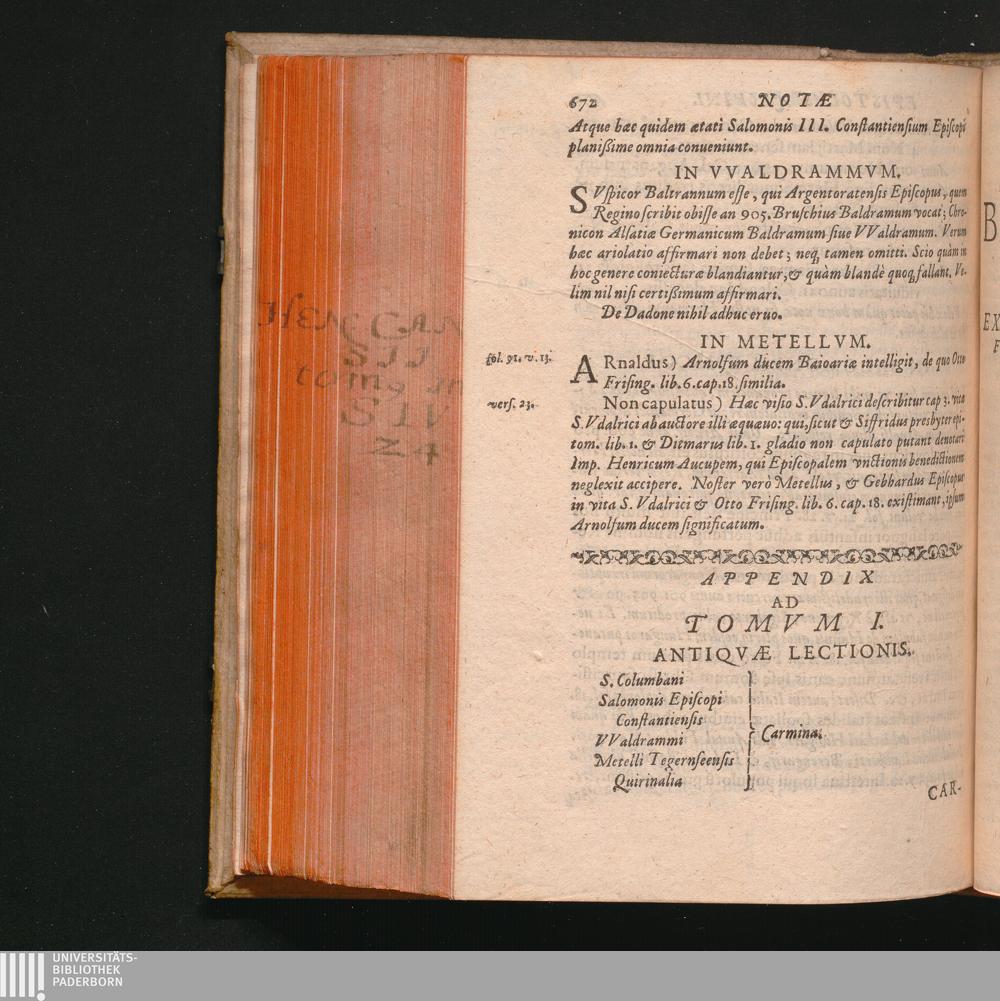 672 NOTÆ
Atque hæc quidem ætati Salomonis III. Conſtantienſium Epiſcopi
planißime omnia conueniunt.
IN VVALDRAMMVM.
SVſpicor Baltrannum eſſe, qui Argentoratenſis Epiſcopus, quem
Regino ſcribit obiſſe an 905. Bruſchius Baldramum vocat; Chro-
nicon Alſatiæ Germanicum Baldramum ſiue VValdramum. Verum
hæc ariolatio affirmari non debet; neq; tamen omitti. Scio quàm in
hoc genere coniecturæ blandiantur, & quàm blandè quoq; fallant. Ve-
lim nil niſi certißimum affirmari.
De Dadone nihil adhuc eruo.
IN METELLVM.
fol. 91. v. 13.
ARnaldus) Arnolfum ducem Baioariæ intelligit, de quo Otto
Friſing. lib. 6. cap. 18. ſimilia.
verſ. 23.
Non capulatus) Hæc viſio S. Vdalrici deſcribitur cap 3. vita
S. Vdalrici ab auctore illi æquæuo: qui, ſicut & Siffridus presbyter epi-
tom. lib. 1. & Ditmarus lib. 1. gladio non capulato putant denotari
Imp. Henricum Aucupem, qui Epiſcopalem vnctionis benedictionem
neglexit accipere. Noſter verò Metellus, & Gebhardus Epiſcopus
in vita S. Vdalrici & Otto Friſing. lib. 6. cap. 18. exiſtimant, ipſum
Arnolfum ducem ſignificatum.
APPENDIX
AD
TOMVM I.
ANTIQVÆ LECTIONIS.
S. Columbani
Salomonis Epiſcopi
Conſtantienſis
VValdrammi
Metelli Tegernſeenſis
Quirinalia
Carmina.
CAR-
HEN CAN
SII
tomq
SIV
24
B
EX
F
UNIVERSITÄTS-
BIBLIOTHEK
PADERBORN